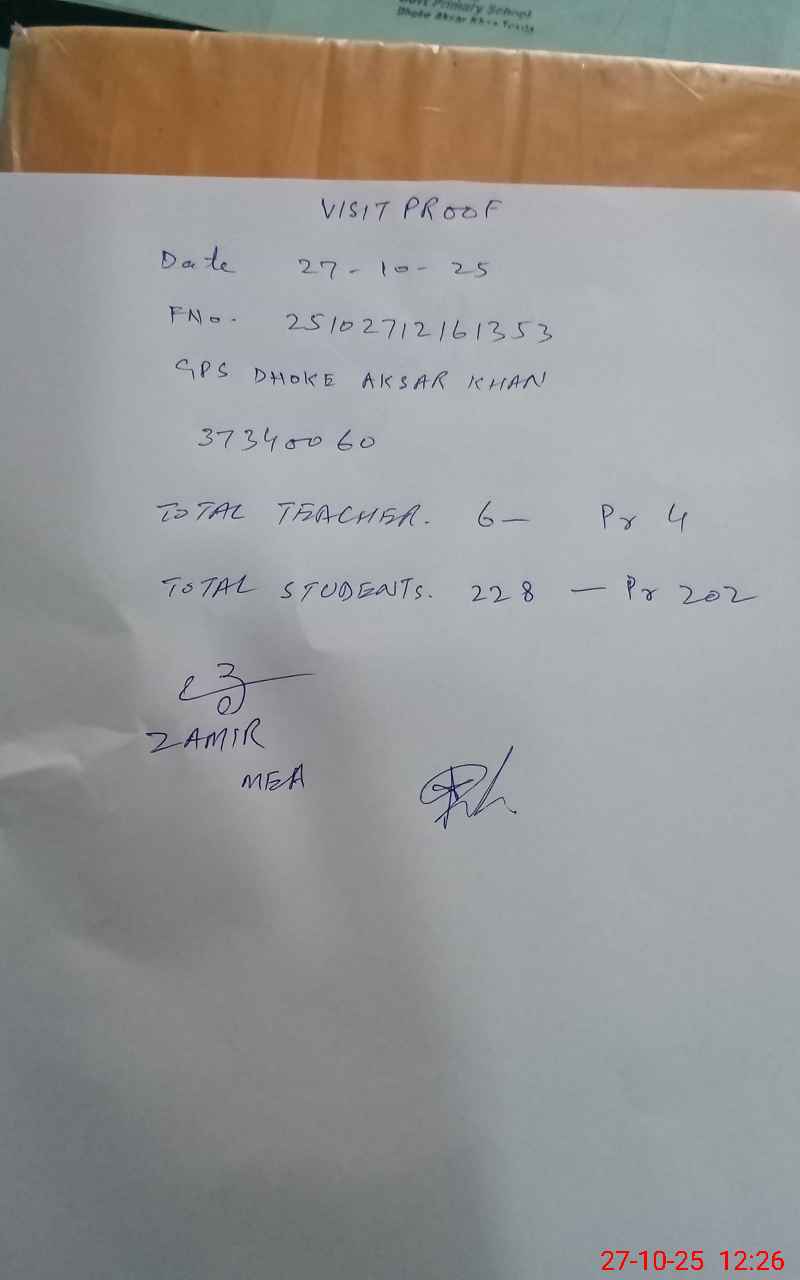 Govt Primary School
VISIT PROOF
Date 27-10-25
FNo. 25102712161353
GPS DHOKE AKSAR KHAN
37340060
TOTAL TEACHER. 6 — Pr 4
TOTAL STUDENTS. 228 — Pr 202
ZAMIR
MEA
27-10-25 12:26